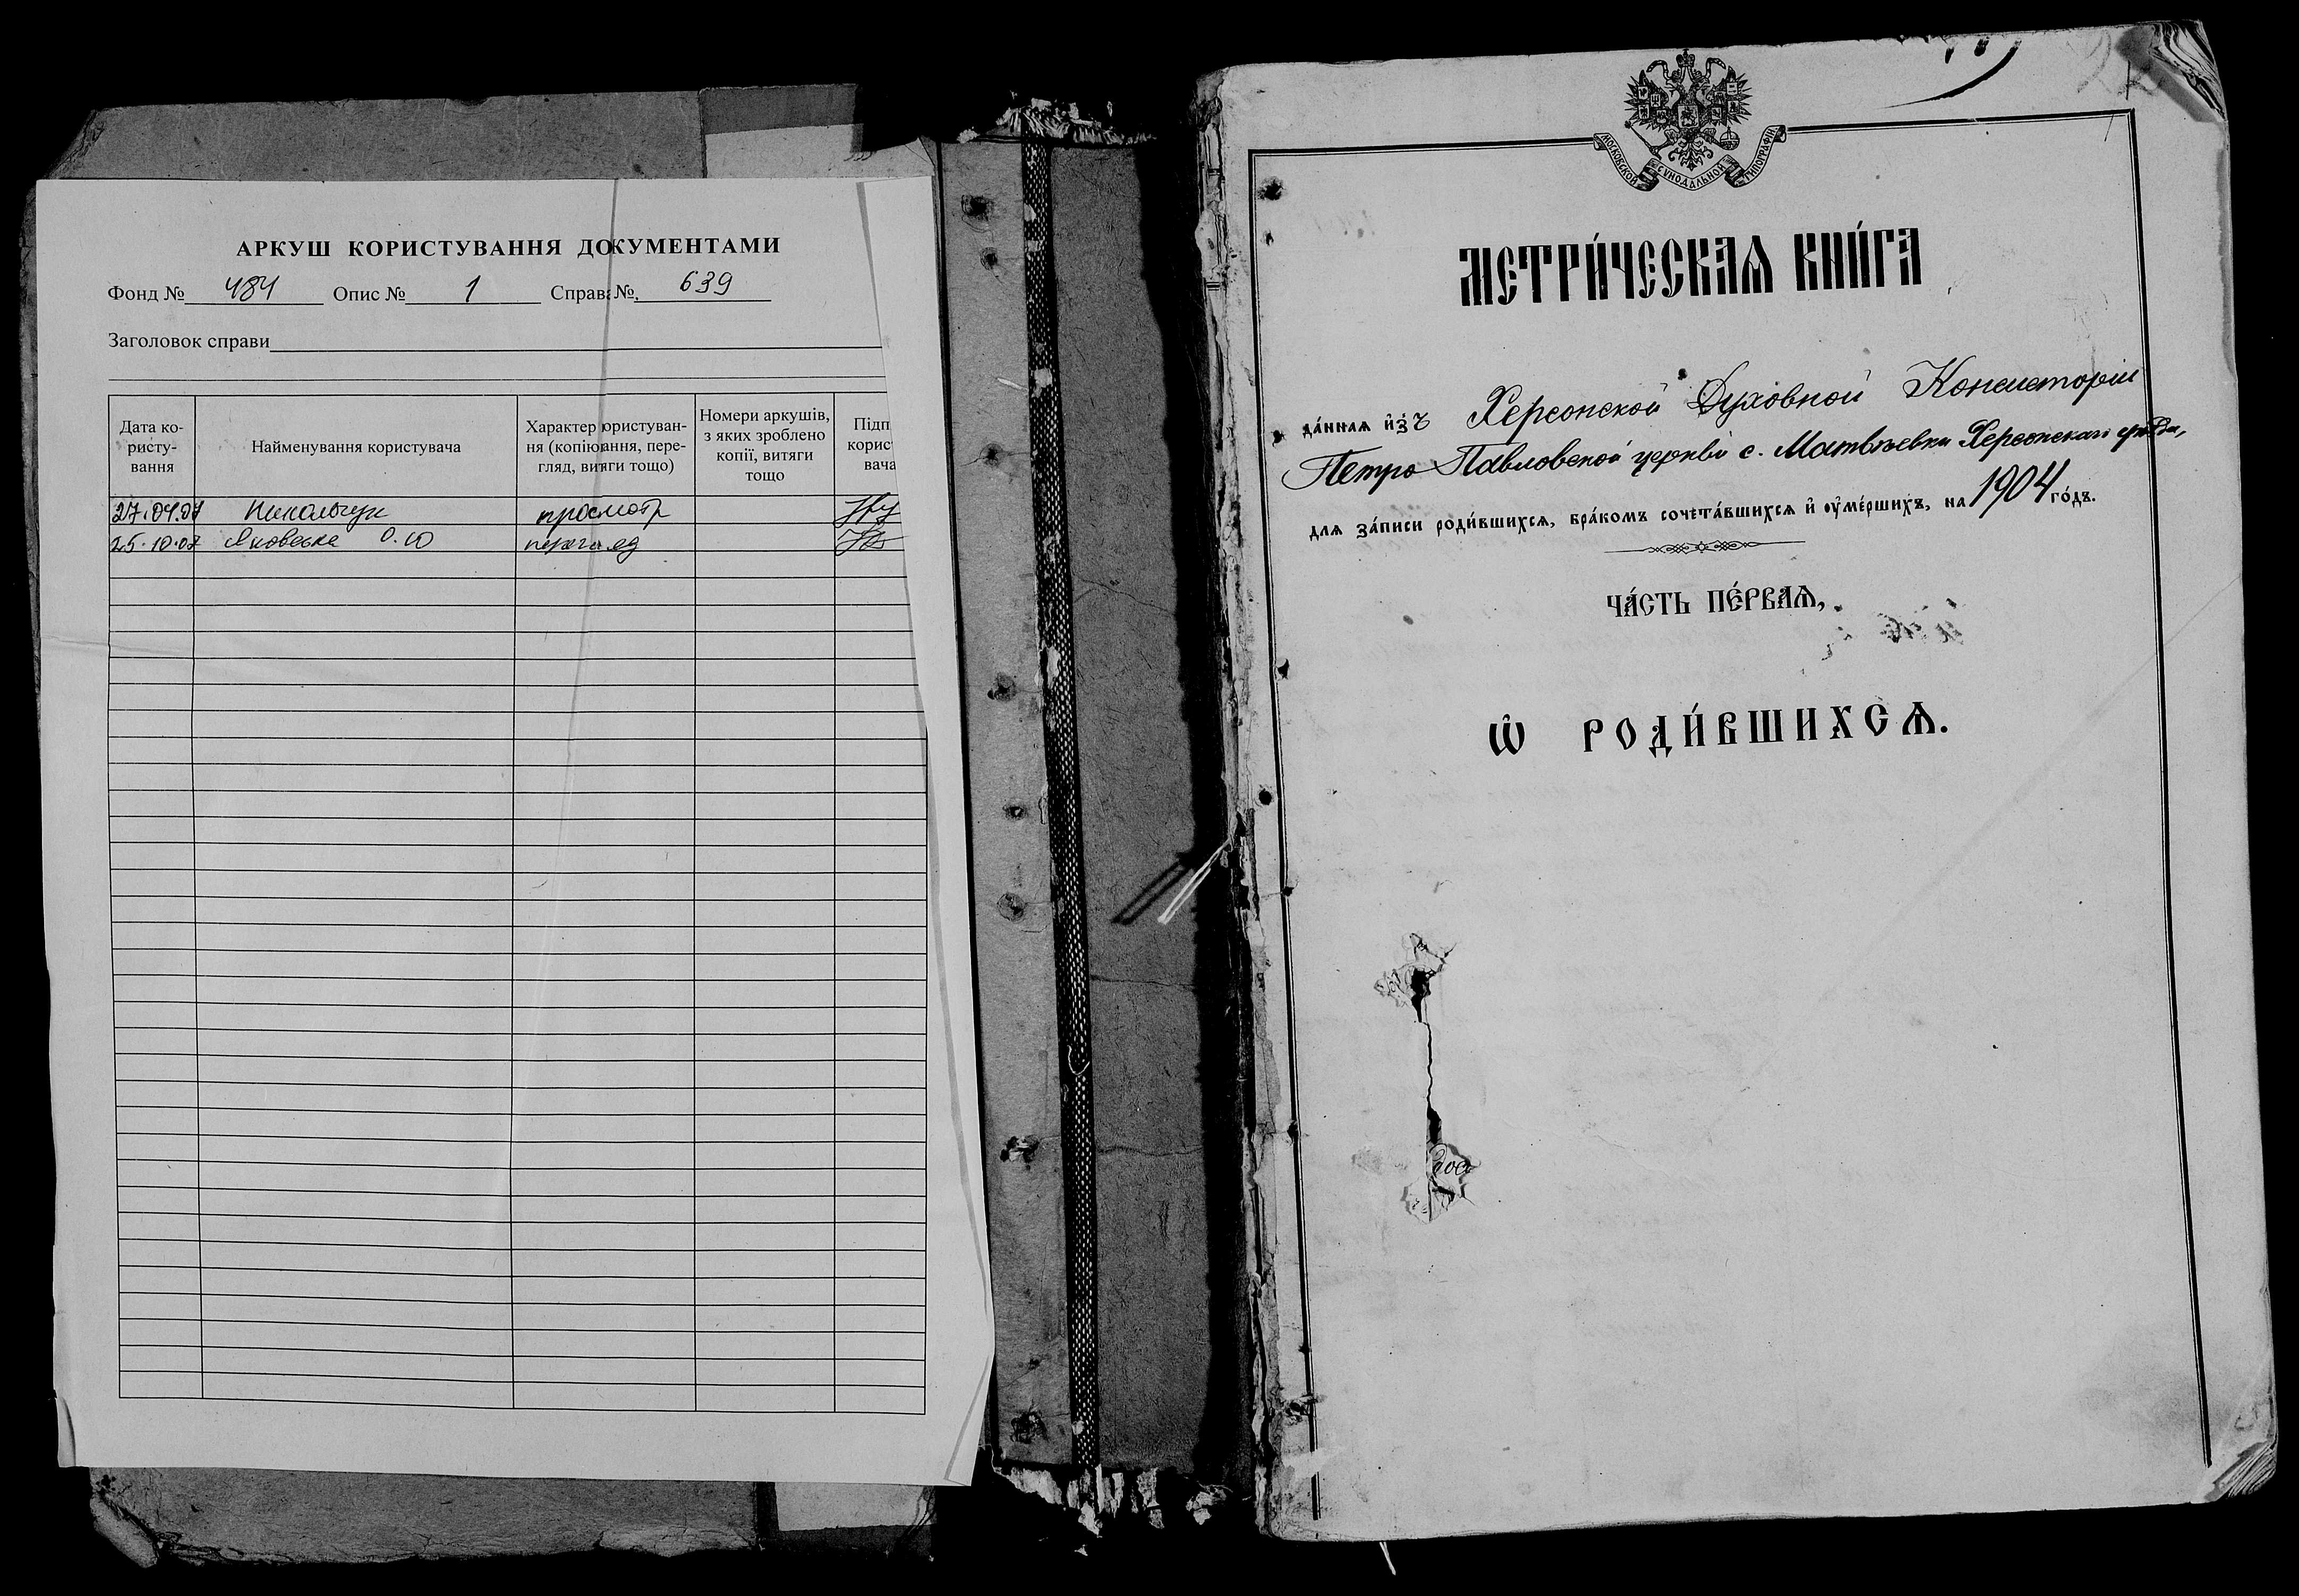 АРКУШ КОРИСТУВАННЯ ДОКУМЕНТАМИ
Фонд № 484 Опис № 1 Справа №. 639
Заголовок справи
Дата ко-
ристу-
вання
Найменування користувача
Характер користуван-
ня (копіювання, пере-
гляд, витяги тощо)
Номери аркушів,
з яких зроблено
копії, витяги
тощо
Підп
корис
вача
27.04.07 просмотр
25.10.07 Яковська О.Ю перегляд
МОСКОВСКОЙ СѴНОДАЛЬНОЙ ТИПОГРАФІИ
МЕТРИ́ЧЕСКАѦ КНИ́ГА
да́ннаѧ и҆зъ Херсонской Духовной Консисторіи
Петро-Павловской церкви с. Матвѣевки Херсонскаго уѣзда,
длѧ за́писи роди́вшихсѧ, бра́комъ сочета́вшихсѧ и҆ ѹ҆ме́ршихъ, на 1904 го́дъ.
ЧА́СТЬ ПЕ́РВАѦ,
Ѡ҆ РОДИ́ВШИХСѦ.